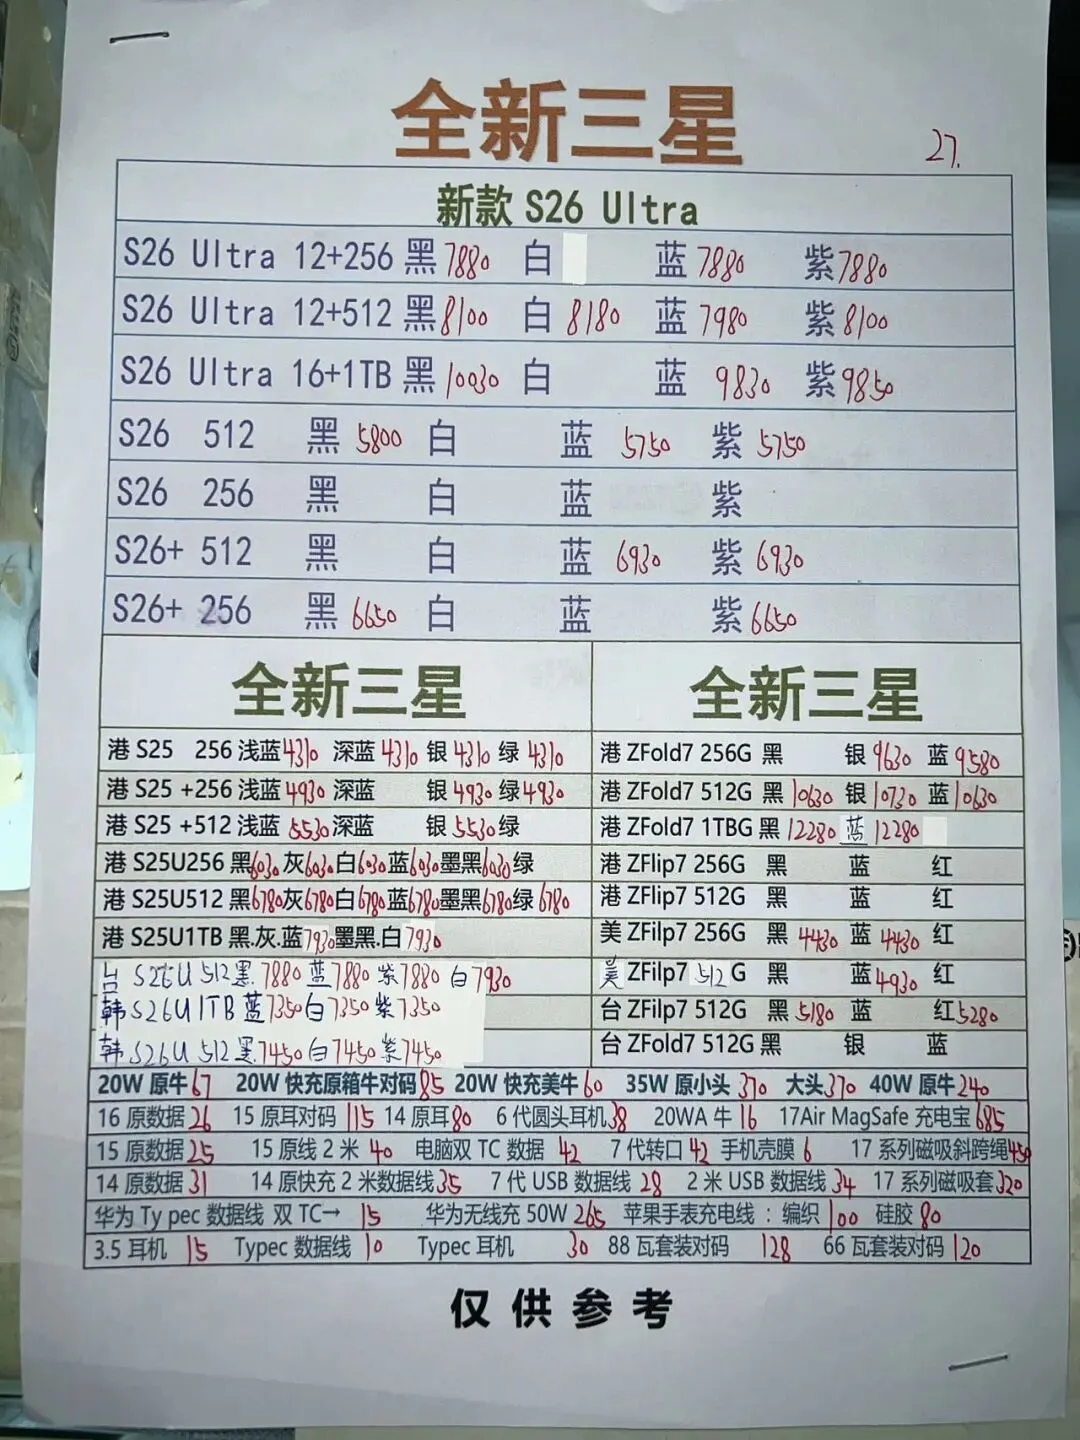 全新三星
27.
新款 S26 Ultra
S26 Ultra 12+256 黑 7880 白 蓝 7880 紫 7880
S26 Ultra 12+512 黑 8100 白 8180 蓝 7980 紫 8100
S26 Ultra 16+1TB 黑 10030 白 蓝 9830 紫 9850
S26 512 黑 5800 白 蓝 5750 紫 5750
S26 256 黑 白 蓝 紫
S26+ 512 黑 白 蓝 6930 紫 6930
S26+ 256 黑 6650 白 蓝 紫 6650
全新三星
港 S25 256 浅蓝 4310 深蓝 4310 银 4310 绿 4310
港 S25 +256 浅蓝 4930 深蓝 银 4930 绿 4930
港 S25 +512 浅蓝 5530 深蓝 银 5530 绿
港 S25U256 黑 6030 灰 6030 白 6030 蓝 6030 墨黑 6030 绿
港 S25U512 黑 6780 灰 6780 白 6780 蓝 6780 墨黑 6780 绿 6780
港 S25U1TB 黑.灰.蓝 7930 墨黑.白 7930
台 S26U 512 黑 7880 蓝 7880 紫 7880 白 7930
韩 S26U 1TB 蓝 7350 白 7350 紫 7350
韩 S26U 512 黑 7450 白 7450 紫 7450
全新三星
港 ZFold7 256G 黑 银 9630 蓝 9580
港 ZFold7 512G 黑 10630 银 10730 蓝 10630
港 ZFold7 1TBG 黑 12280 蓝 12280
港 ZFlip7 256G 黑 蓝 红
港 ZFlip7 512G 黑 蓝 红
美 ZFilp7 256G 黑 4430 蓝 4430 红
美 ZFilp7 512 G 黑 蓝 4930 红
台 ZFilp7 512G 黑 5180 蓝 红 5280
台 ZFold7 512G 黑 银 蓝
20W 原牛 67 20W 快充原箱牛对码 85 20W 快充美牛 60 35W 原小头 370 大头 370 40W 原牛 240
16 原数据 26 15 原耳对码 115 14 原耳 80 6 代圆头耳机 38 20WA 牛 16 17Air MagSafe 充电宝 685
15 原数据 25 15 原线 2 米 40 电脑双 TC 数据 42 7 代转口 42 手机壳膜 6 17 系列磁吸斜跨绳 450
14 原数据 31 14 原快充 2 米数据线 35 7 代 USB 数据线 28 2 米 USB 数据线 34 17 系列磁吸套 320
华为 Ty pec 数据线 双 TC→ 15 华为无线充 50W 265 苹果手表充电线：编织 100 硅胶 80
3.5 耳机 15 Typec 数据线 10 Typec 耳机 30 88 瓦套装对码 128 66 瓦套装对码 120
仅供参考